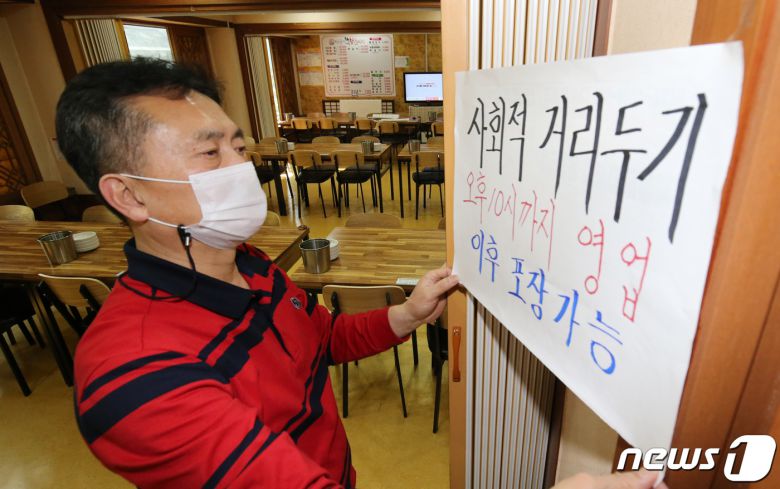 사회적 거리두기
오후10시까지 영업
이후 포장가능
news1